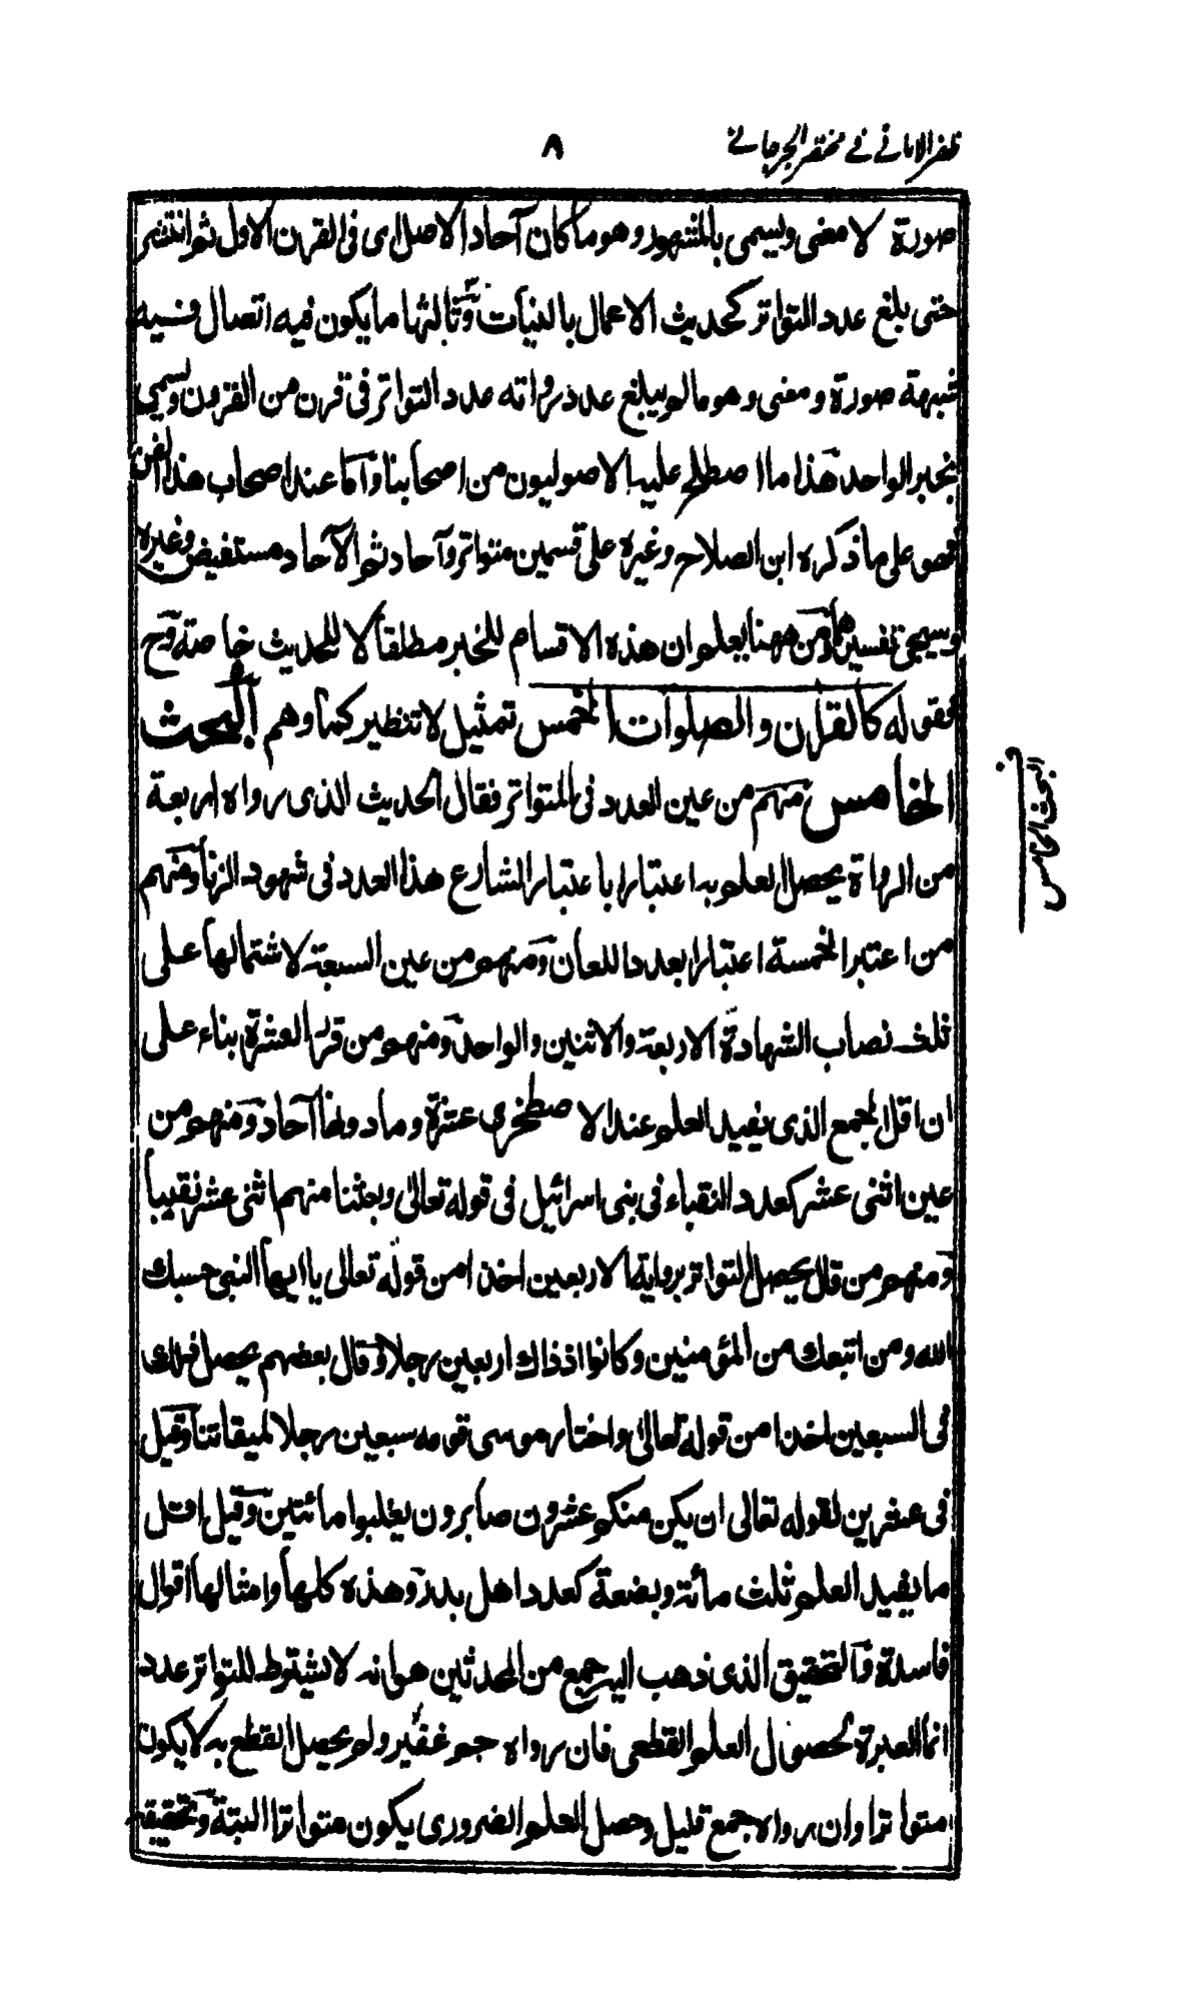 ظفر الامانی فی مختصر الجرجانی
٨
صورة لا معنى ويسمى بالمشهور وهو ما كان آحاد الاصل اى فى القرن الاول ثم انتشر
حتى بلغ عدد التواتر كحديث الاعمال بالنيات وثالثها ما يكون فيه اتصال فيه
شبهة صورة ومعنى وهو ما لم يبلغ عدد رواته عدد التواتر فى قرن من القرون ويسمى
بخبر الواحد هذا ما اصطلح عليه الاصوليون من اصحابنا واما عند اصحاب هذا الفن
فهو على ما ذكره ابن الصلاح وغيره على قسمين متواتر وآحاد ثم الآحاد مستفيض وغيره
وسيجئ تفسيرهما ومن ههنا يعلم ان هذه الاقسام للخبر مطلقا لا للحديث خاصة وح
فقوله كالقرآن والصلوات الخمس تمثيل لا تنظير كما وهم البحث
الخامس منهم من عين العدد فى المتواتر فقال الحديث الذى رواه اربعة
من الرواة يحصل العلم به اعتبارا باعتبار الشارع هذا العدد فى شهود الزنا ومنهم
من اعتبر الخمسة اعتبارا بعدد اللعان ومنهم من عين السبعة لاشتمالها على
ثلث نصاب الشهادة الاربعة والاثنين والواحد ومنهم من قرر العشرة بناء على
ان اقل الجمع الذى يفيد العلم عند الاصطخرى عشرة وما دونها آحاد ومنهم من
عين اثنى عشر كعدد النقباء فى بنى اسرائيل فى قوله تعالى وبعثنا منهم اثنى عشر نقيبا
ومنهم من قال يحصل التواتر برواية الاربعين اخذا من قوله تعالى يا ايها النبى حسبك
الله ومن اتبعك من المؤمنين وكانوا اذ ذاك اربعين رجلا وقال بعضهم يحصل ذلك
فى السبعين اخذا من قوله تعالى واختار موسى قومه سبعين رجلا لميقاتنا وقيل
فى عشرين لقوله تعالى ان يكن منكم عشرون صابرون يغلبوا مائتين وقيل اقل
ما يفيد العلم ثلث مائة وبضعة كعدد اهل بدر وهذه كلها وامثالها اقوال
فاسدة والتحقيق الذى ذهب اليه جمع من المحدثين هو انه لا يشترط للتواتر عدد
انما العبرة لحصول العلم القطعى فان رواه جم غفير ولم يحصل القطع به لا يكون
متواترا وان رواه جمع قليل وحصل العلم الضرورى يكون متواترا البتة وتحقيقه
البحث الخامس